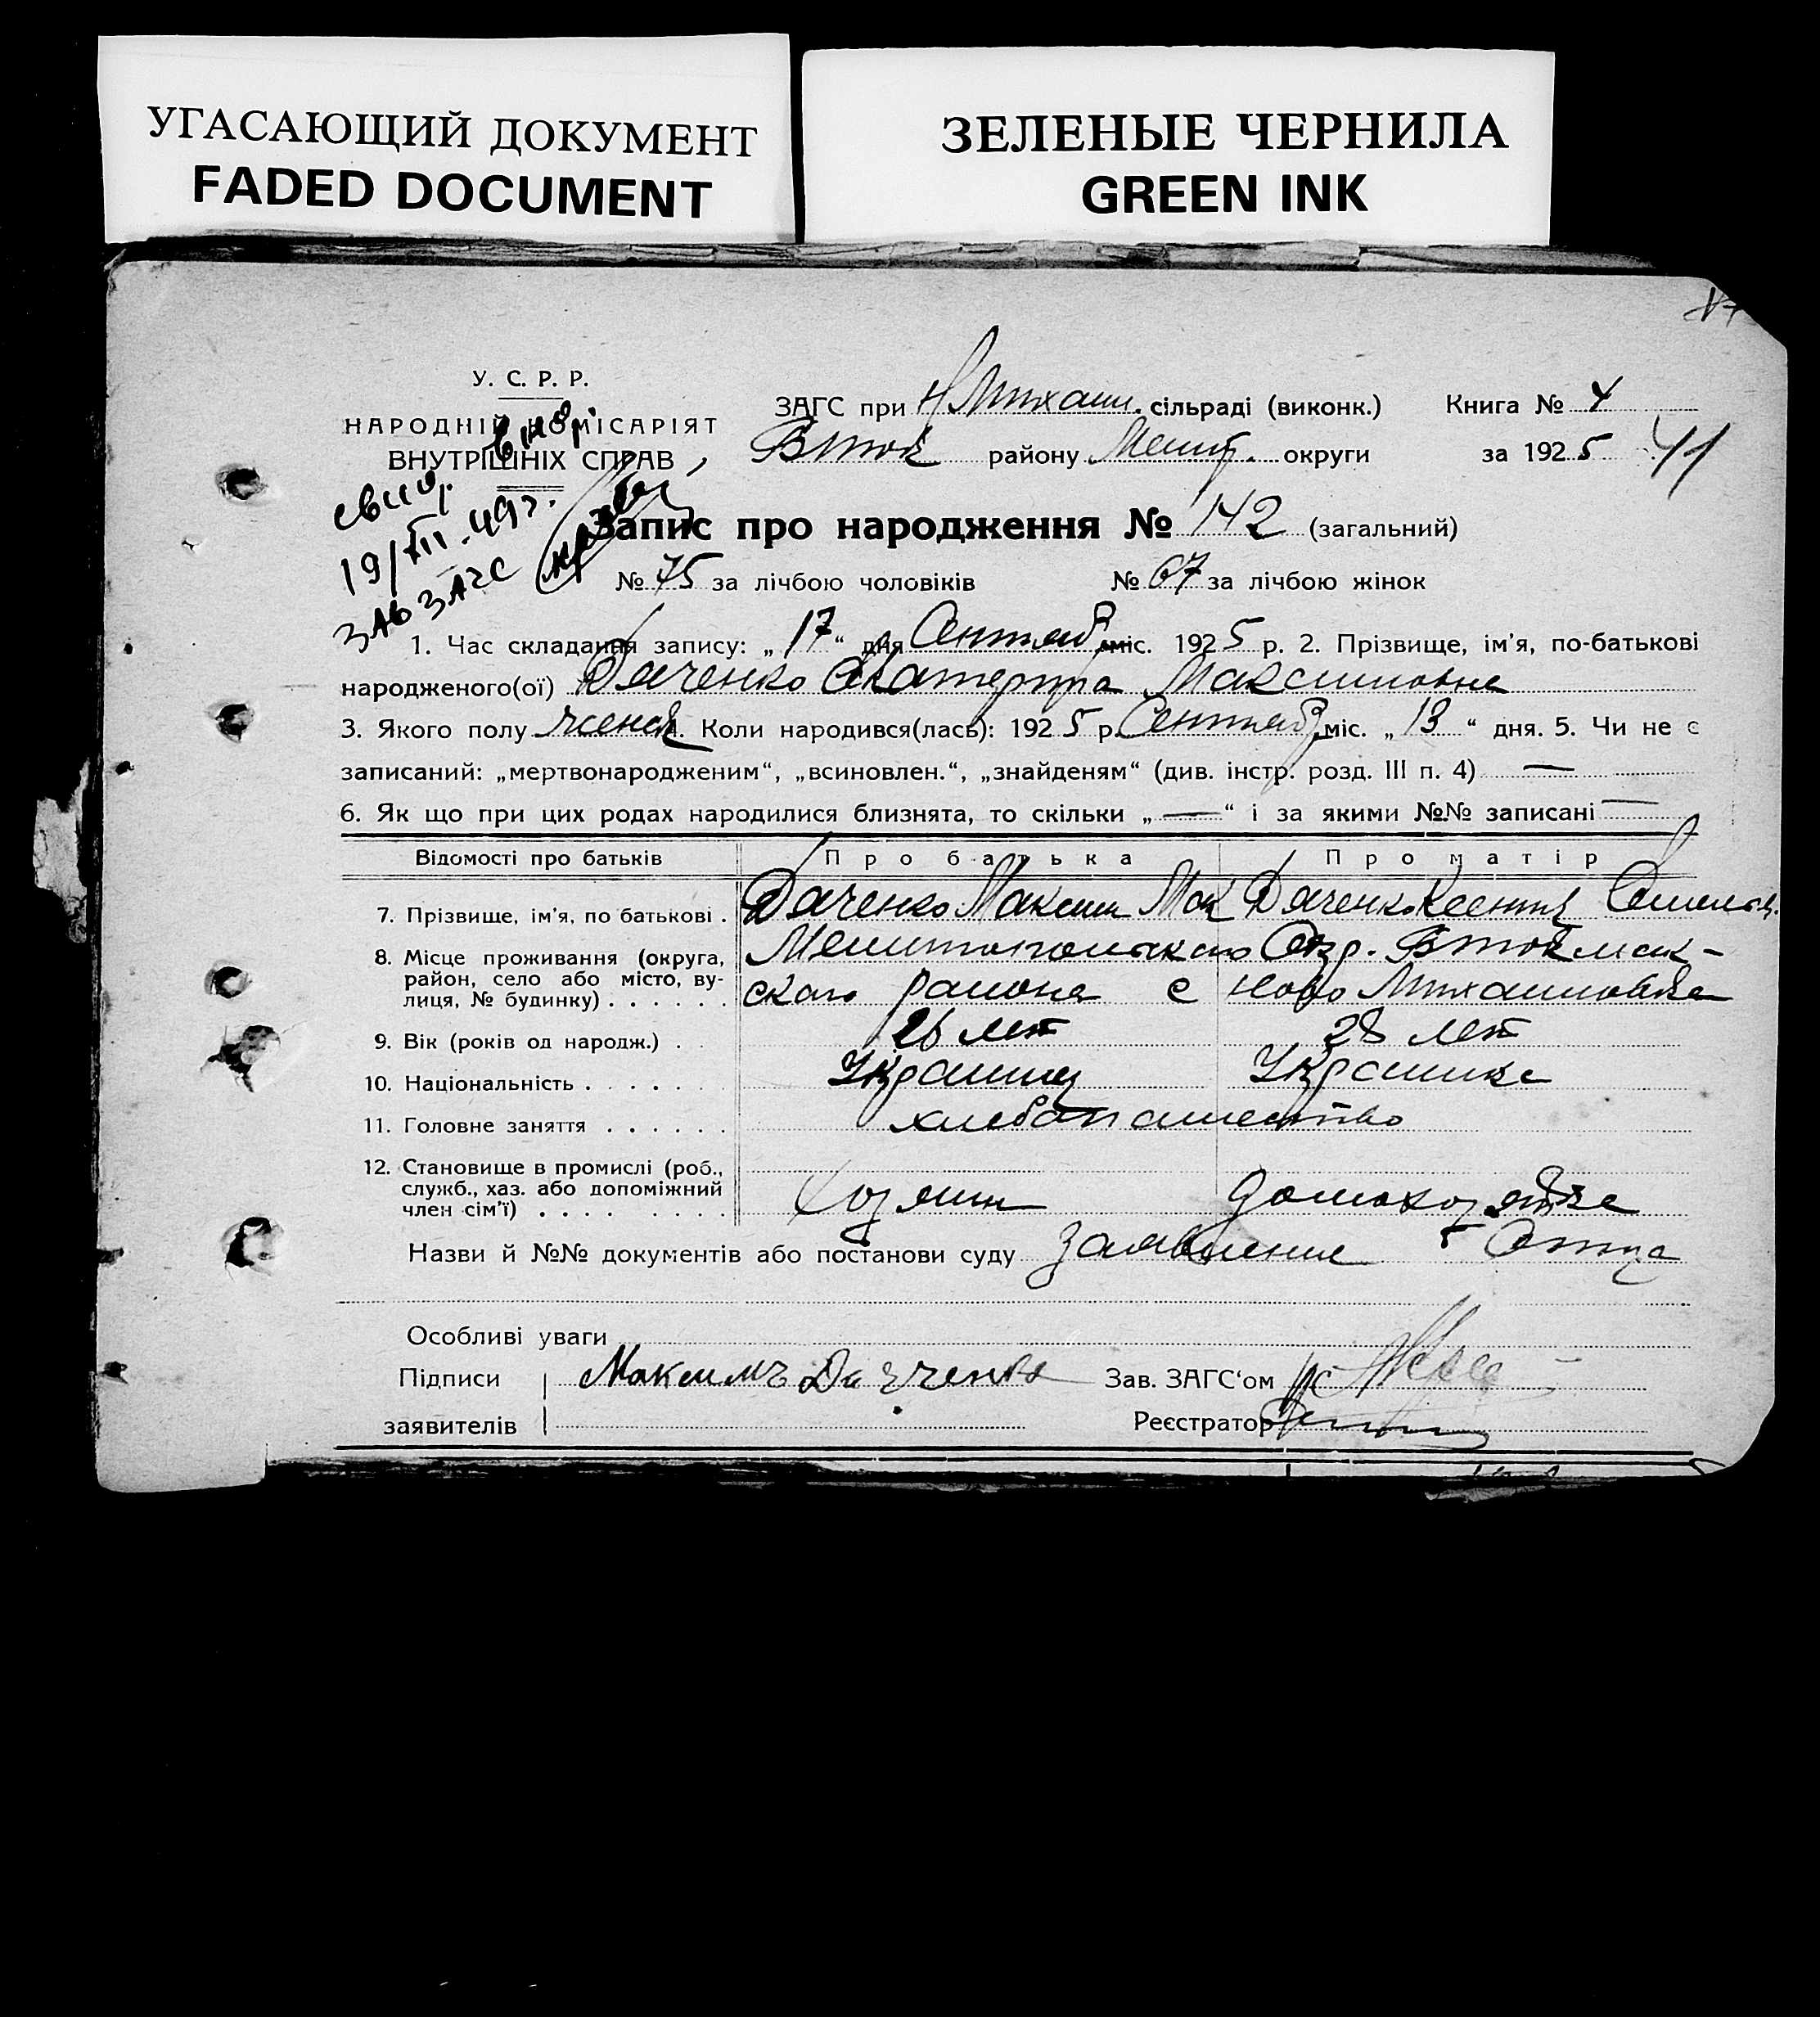 УГАСАЮЩИЙ ДОКУМЕНТ
FADED DOCUMENT
ЗЕЛЕНЫЕ ЧЕРНИЛА
GREEN INK
У. С. Р. Р.
НАРОДНІЙ КОМІСАРІЯТ
ВНУТРІШНІХ СПРАВ
ЗАГС при Н Михаил. сільраді (виконк.) Книга № 4
району Мелит. округи за 1925 41
19/XII-49г.
ЗАВ ЗАГС
Запис про народження № 142 (загальний)
№ 75 за лічбою чоловіків № 67 за лічбою жінок
1. Час складання запису: „17“ дня Сентяб міс. 1925 р. 2. Прізвище, ім’я, по-батькові
народженого(ої) Дяченко Екатерина Максимовна
3. Якого полу женск 4. Коли народився(лась): 1925 р. Сентяб міс. „13“ дня. 5. Чи не є
записаний: „мертвонародженим“, „всиновлен.“, „знайденям“ (див. інстр. розд. III п. 4) —
6. Як що при цих родах народилися близнята, то скільки „—“ і за якими №№ записані —
Відомості про батьків Про батька Про матір
7. Прізвище, ім’я, по батькові . Дяченко Максим Мак Дяченко Ксения
8. Місце проживання (округа, Мелитопольскаго Окр.
район, село або місто, ву- скаго района с Ново Михайловка
лиця, № будинку) . . . . . .
9. Вік (років од народж.) . 26 лет 28 лет
10. Національність . . . . . Украинец Украинка
11. Головне заняття . . . . . . хлебопашество
12. Становище в промислі (роб.,
служб., хаз. або допоміжний Хозяин домохозяйка
член сім’ї) . . . . . . . .
Назви й №№ документів або постанови суду Заявление Отца
Особливі уваги
Підписи Максимъ Дяченко Зав. ЗАГС‘ом
заявителів Реєстратор